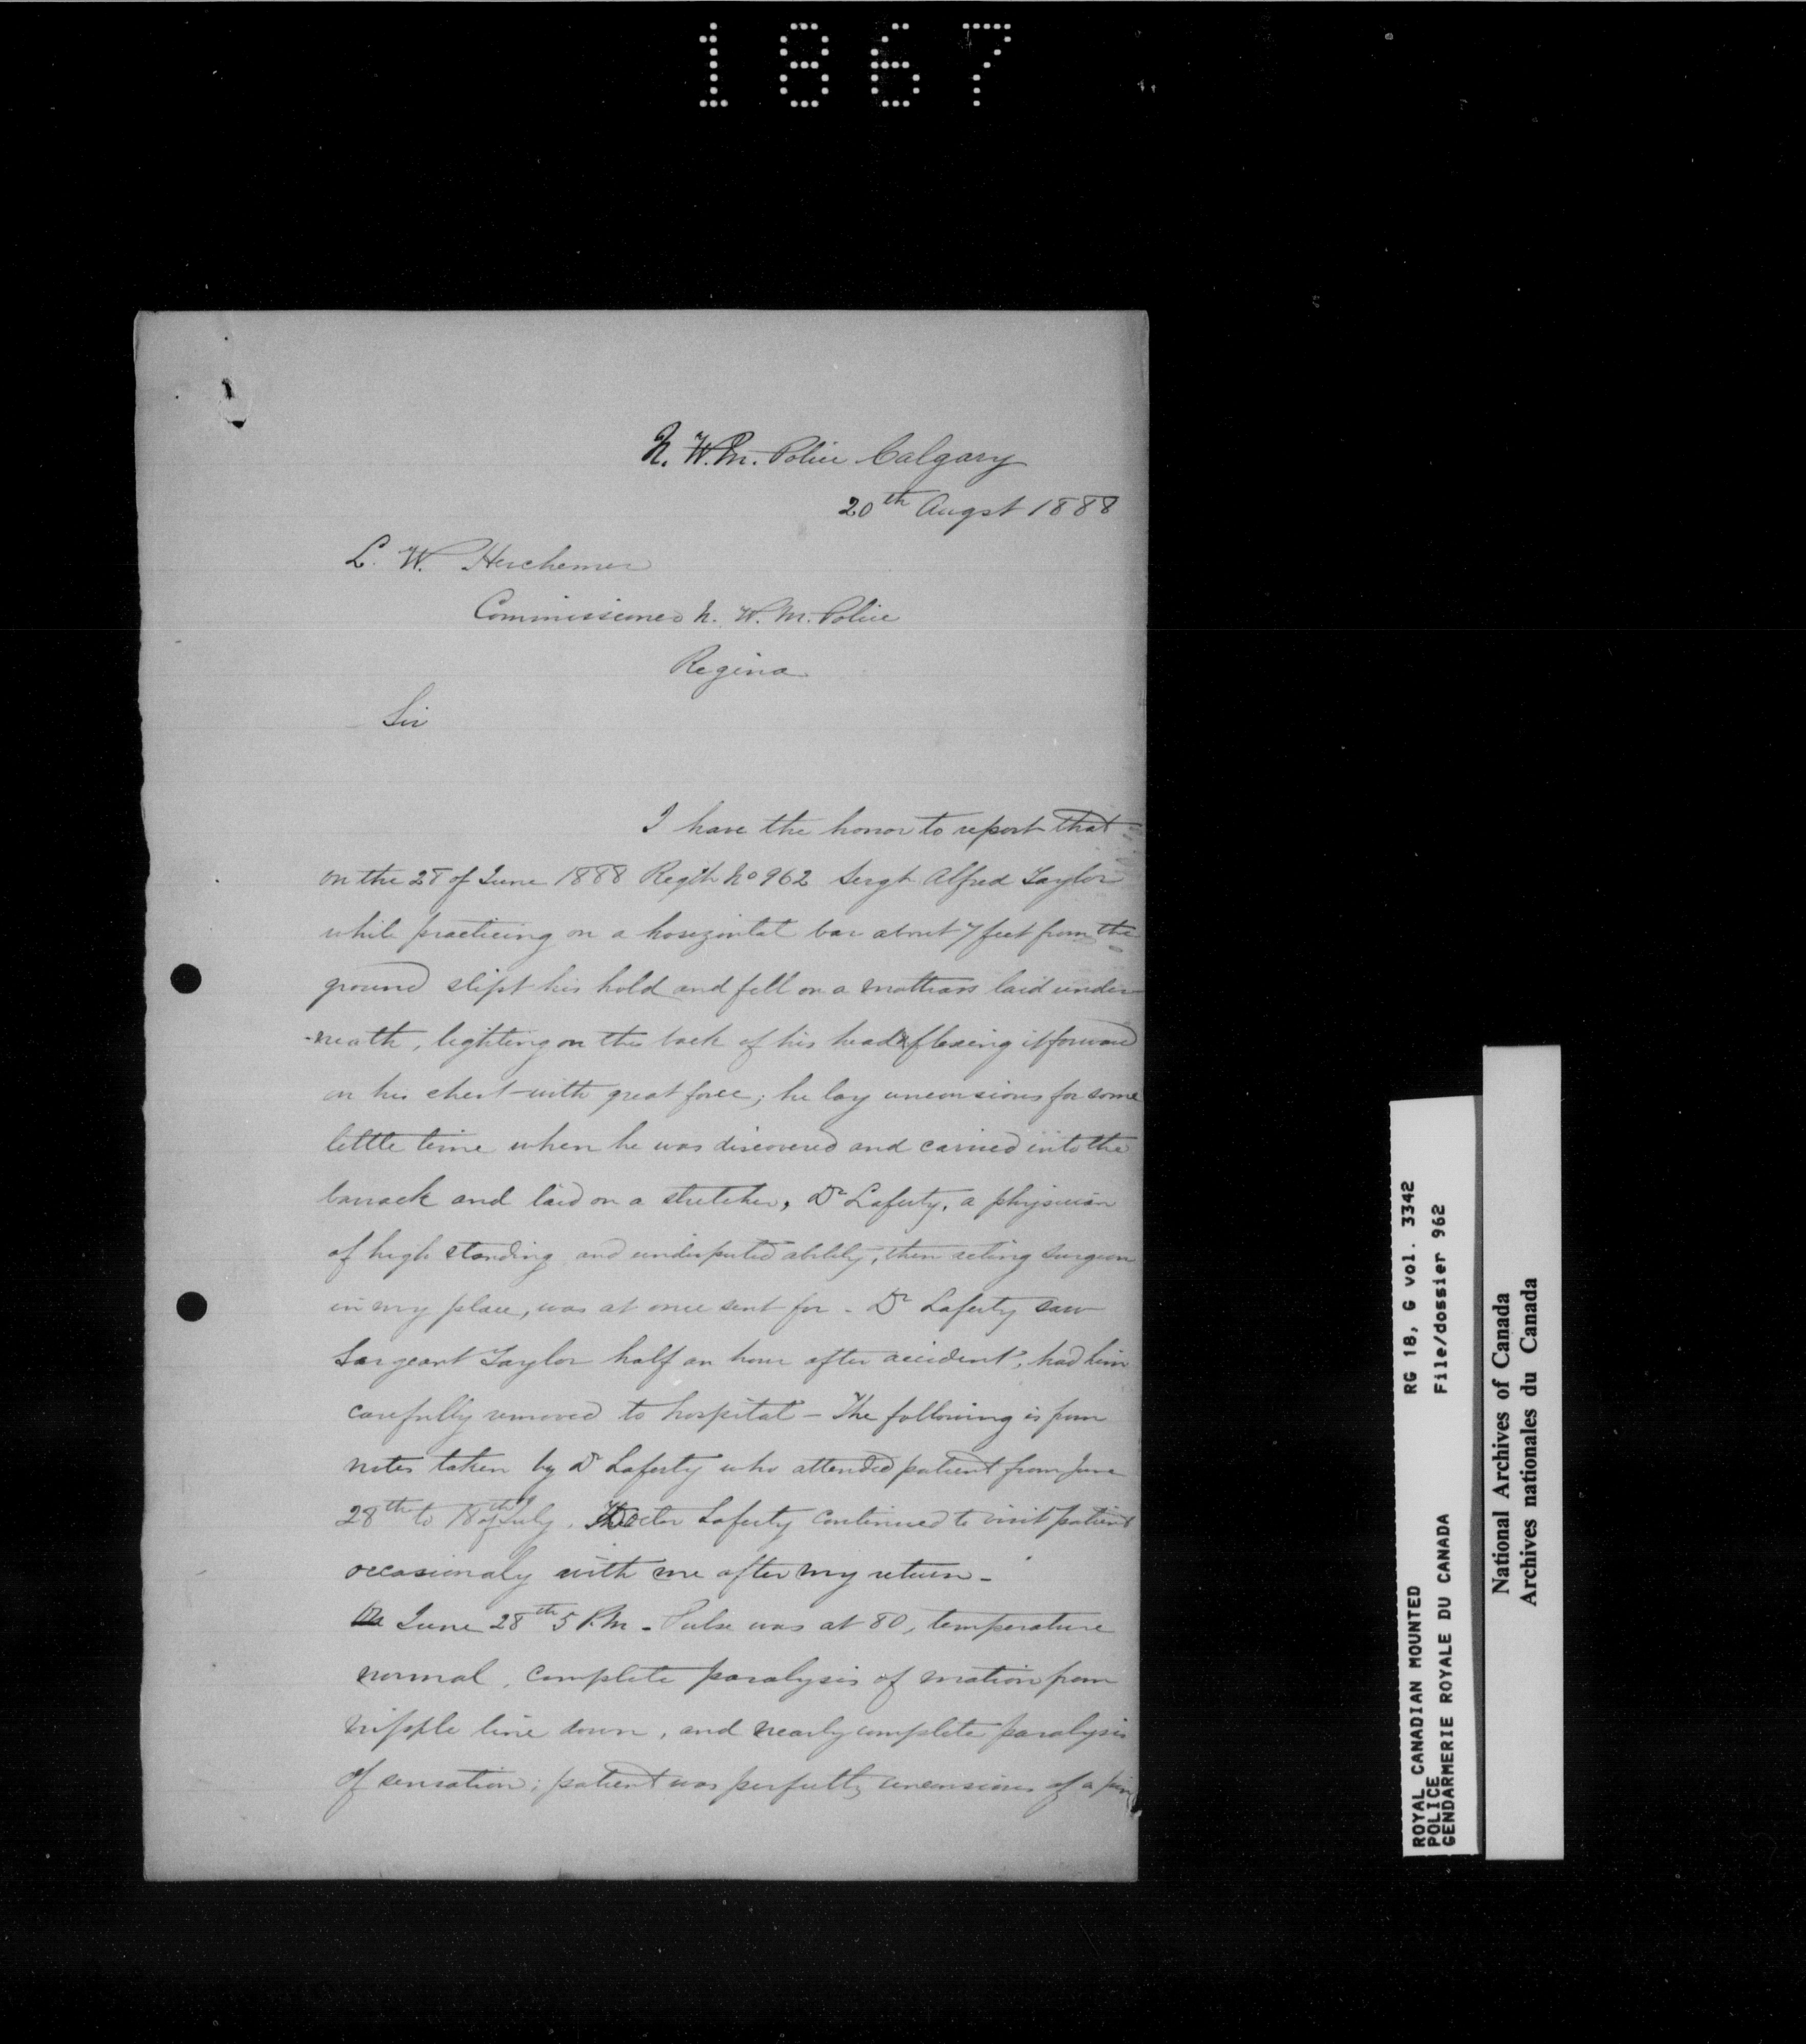 1867
N. W. M. Police Calgary
20th Augst 1888
L. W. Herchemer
Commissioner N. W. M. Police
Regina
Sir
I have the honor to report that
on the 28 of June 1888 Regth No 962 Sergt Alfred Taylor
while practicing on a horizontal bar about 7 feet from the
ground slipt his hold and fell on a mattrass laid under
-neath, lighting on the back of his head & flexing it forward
on his chest with great force; he lay unconsious for some
little time when he was discovered and carried into the
barrack and laid on a stretcher, Dr Laferty, a physician
of high standing and undisputed ability, then acting surgeon
in my place, was at once sent for - Dr Laferty saw
Sargeant Taylor half an hour after accident, had him
carefully removed to hospital - The following is from
notes taken by Dr Laferty who attended patient from June
28th to 18th of July. Doctor Laferty continued to visit patient
occasionaly with me after my return -
June 28th 5 P.M. - Pulse was at 80, temperature
normal, complete paralysis of motion from
nipple line down, and nearly complete paralysis
of sensation; patient was perfectly unconsious of a pin
RG 18, G vol. 3342
File/dossier 962
ROYAL CANADIAN MOUNTED
POLICE
GENDARMERIE ROYALE DU CANADA
National Archives of Canada
Archives nationales du Canada